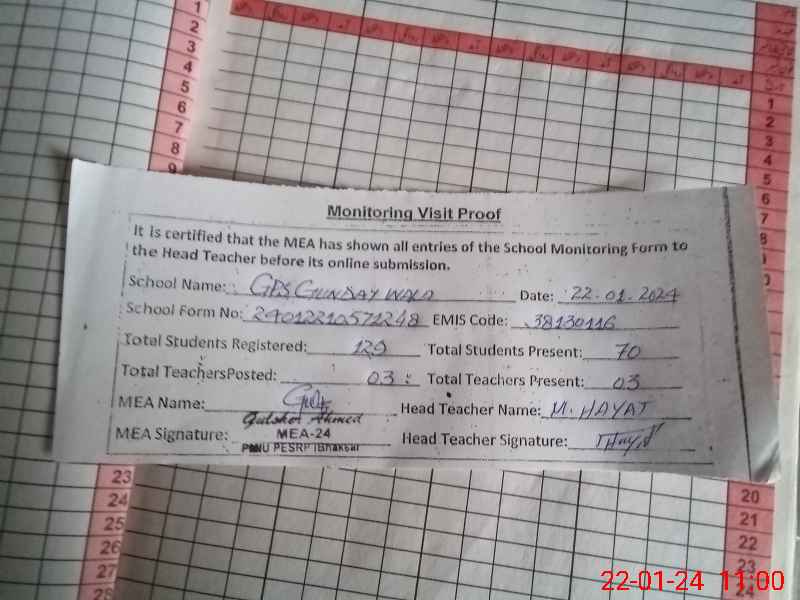 1
2
3
4
5
6
7
8
9
1
2
3
4
5
6
7
8
9
Monitoring Visit Proof
It is certified that the MEA has shown all entries of the School Monitoring Form to
the Head Teacher before its online submission.
School Name: GPS GUNDAY WALA Date: 22.01.2024
School Form No: 24012210571248 EMIS Code: 38130116
Total Students Registered: 129 Total Students Present: 70
Total TeachersPosted: 03 Total Teachers Present: 03
MEA Name: Head Teacher Name: M. HAYAT
Gulsher Ahmed
MEA Signature: MEA-24 Head Teacher Signature:
PMU PESRP (Bhakkar
23
24
25
26
27
28
20
21
22
23
24
22-01-24 11:00